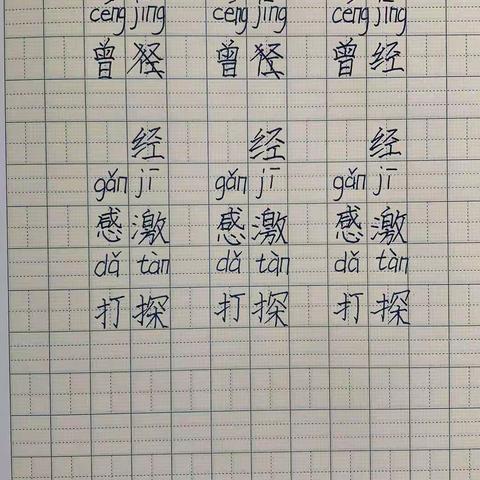 céng jīng céng jīng céng jīng
曾 曾 曾经
经 经 经
gǎn jī gǎn jī gǎn jī
感激 感激 感激
dǎ tàn dǎ tàn dǎ tàn
打探 打探 打探